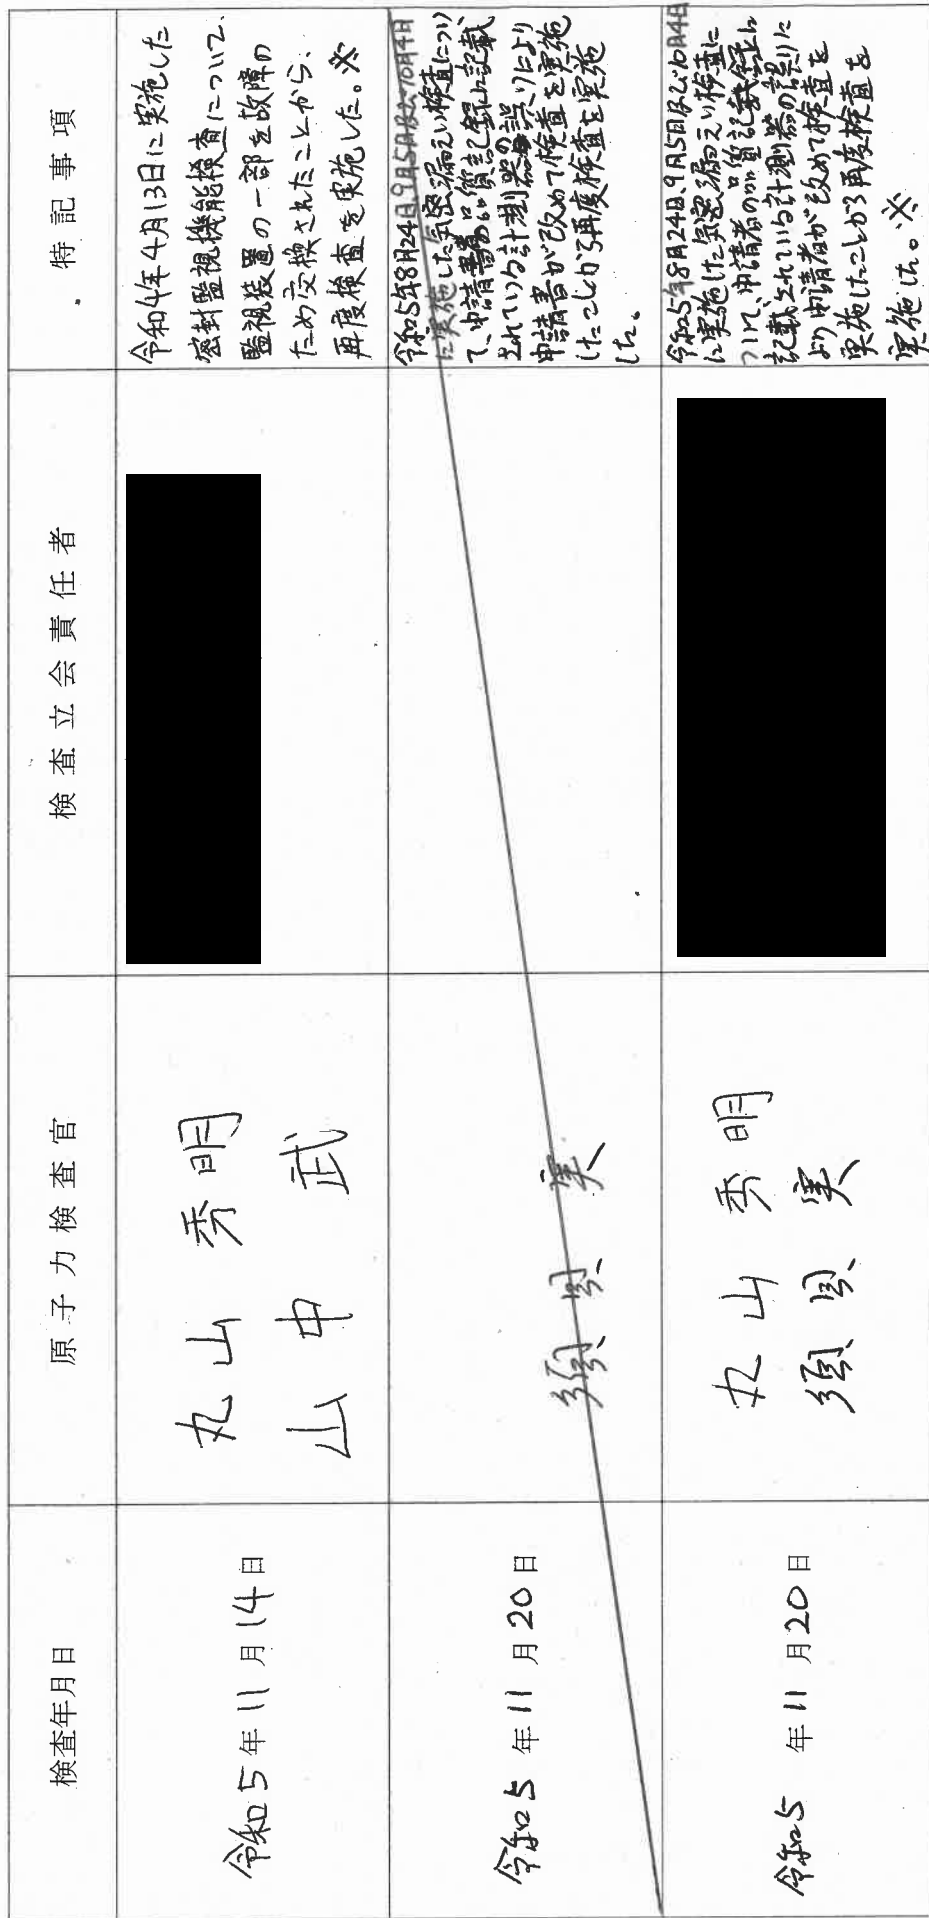 検査年月日
原子力検査官
検査立会責任者
特記事項
令和5年11月14日
丸山 秀明
山中 武
令和4年4月13日に実施した
密封監視機能検査について、
監視装置の一部を故障の
ため交換されたことから、
再度検査を実施した。※
令和5年11月20日
須貝 実
令和5年8月24日、9月5日及び10月4日
に実施した気密漏えい検査につい
て、申請者の品質記録に記載
されている計測器の誤りにより
申請書が改めて検査を実施
したことから再度検査を実施
した。
令和5年11月20日
丸山 秀明
須貝 実
令和5年8月24日、9月5日及び10月4日
に実施した気密漏えい検査に
ついて、申請者の品質記録に
記載されている計測器の誤りに
より申請者が改めて検査を
実施したことから再度検査を
実施した。※